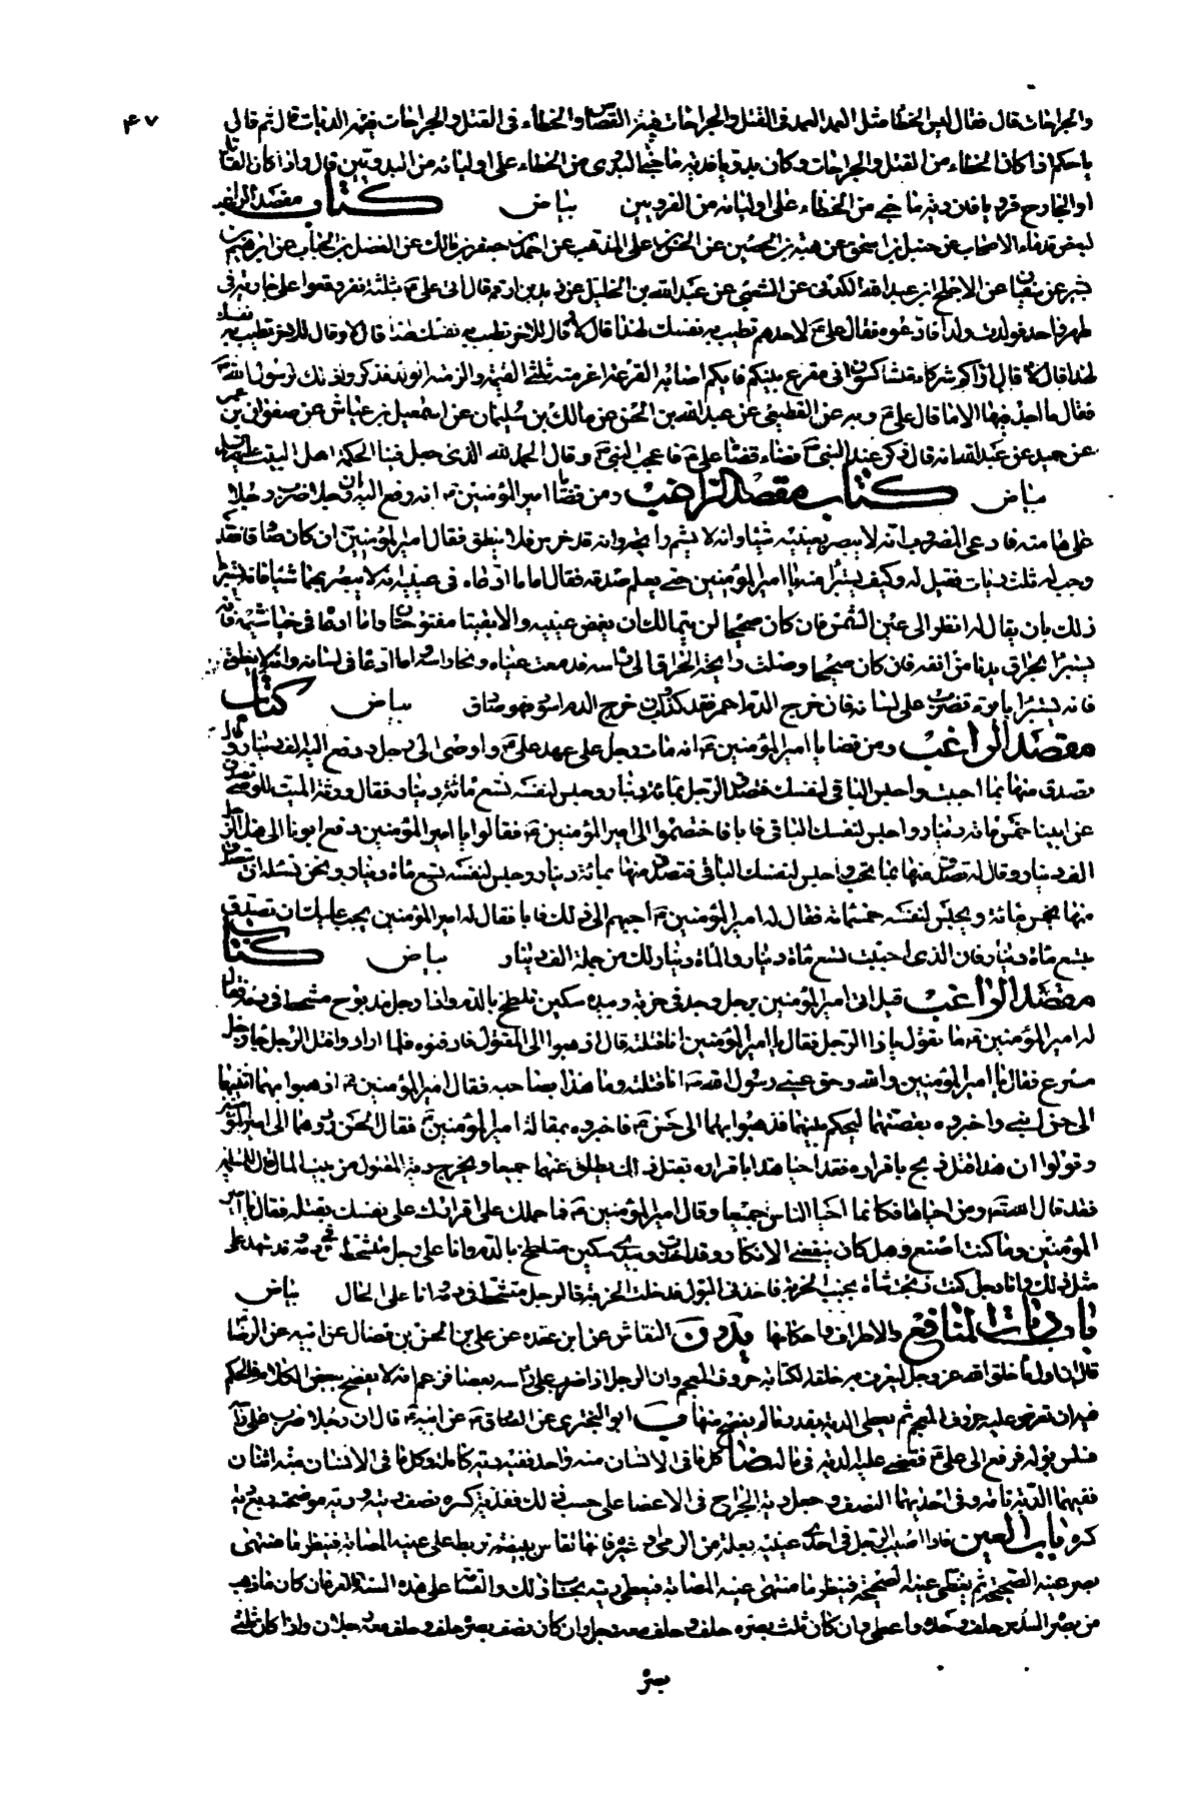 ۴۷
والجراحات قال فقال ليس الخطاء مثل العمد العمد فى القتل والجراحات فيه القصاص والخطاء فى القتل والجراحات فيه الديات قال ثم قال
يا حكم اذا كان الخطاء من القتل والجراحات وكان بدويا فدية ما جنى البدوى من الخطاء على اوليائه من البدويين قال واذا كان القاتل
او الجارح قرويا فان دية ما جنى من الخطاء على اوليائه من القرويين بياض كتاب مقصد الراغب
لبعض قدماء الاصحاب عن حنبل بن اسحق عن هبة بن الحصين عن الحسن بن على المذهب عن احمد بن جعفر بن مالك عن الفضل بن الحباب عن ابرهيم بن
بشر عن سفيان عن الاجلح بن عبد الله الكندى عن الشعبى عن عبد الله بن الخليل عن زيد بن ارقم قال اتى على ع بثلثة نفر وقعوا على جارية فى
طهر واحد فولدت ولدا فادعوه فقال على ع لاحدهم تطيب به نفسك لهذا قال لا قال للاخر تطيب به نفسك لهذا قال لا وقال للاخر تطيب به نفسك
لهذا قال لا قال اراكم شركاء متشاكسون انى مقرع بينكم فايكم اصابه القرعة اغرمته ثلثى القيمة والزمته الولد فذكروا ذلك لرسول الله ص
فقال ما اجد فيها الا ما قال على ع وبه عن القطيعى عن عبد الله بن الحسن عن مالك بن سليمان عن اسمعيل بن عياش عن صفوان بن عمرو
عن حميد عن عبد الله انه قال ذكر عند النبى ص قضاء قضى على ع فاعجب النبى ص وقال الحمد لله الذى جعل فينا الحكمة اهل البيت
بياض كتاب مقصد الراغب ومن قضايا امير المؤمنين ع انه رفع اليه ان رجلا ضرب رجلا
على هامته فادعى المضروب انه لا يبصر بعينيه شيئا وانه لا يشم رايحة وانه قد خرس فلا ينطق فقال امير المؤمنين ان كان صادقا فقد
وجب له ثلث ديات فقيل له وكيف يستبرأ منه يا امير المؤمنين حتى يعلم صدقه فقال اما ما ادعاه فى عينيه انه لا يبصر بهما شيئا فانه يستبرأ
ذلك بان يقال له انظر الى عين الشمس فان كان صحيحا لن يتمالك ان يغمض عينيه والا بقيتا مفتوحتان واما ما ادعاه فى خياشيمه فانه
يستبرأ بحراق يدنا من انفه فان كان صحيحا وصلت رايحة الحراق الى راسه فدمعت عيناه ونحا راسه واما ما ادعاه فى لسانه وانه لا ينطق
فانه يستبرأ بابرة تضرب على لسانه فان خرج الدم احمر فقد كذب وان خرج الدم اسود فهو صادق بياض كتاب
مقصد الراغب ومن قضايا امير المؤمنين ع انه مات رجل على عهد على ع واوصى الى رجل ودفع اليه الف دينار وقال
تصدق منها بما احببت واحبس الباقى لنفسك فتصدق الرجل بمائة دينار وحبس لنفسه تسع مائة دينار فقال ورثة الميت للوصى تصدق
عن ابينا خمس مائة دينار واحبس لنفسك الباقى فابى فاختصموا الى امير المؤمنين ع فقالوا يا امير المؤمنين دفع ابونا الى هذا الرجل
الف دينار وقال له تصدق منها بما تحب واحبس لنفسك الباقى فتصدق منها بمائة دينار وحبس لنفسه تسع مائة دينار ونحن نسئله ان يتصدق
منها بخمس مائة ويحبس لنفسه خمسمائة فقال له امير المؤمنين ع اجبهم الى ذلك فابى فقال له امير المؤمنين يجب عليك ان تصدق
بتسع مائة دينار فان الذى احببت تسع مائة دينار والمائة دينار لك من جملة الف دينار بياض كتاب
مقصد الراغب قيل اتى امير المؤمنين برجل وجد فى خربة وبيده سكين تلطخ بالدم واذا رجل مذبوح متشحط فى دمه فقال
له امير المؤمنين ع ما تقول يا ذا الرجل فقال يا امير المؤمنين انا قتلته قال اذهبوا الى المقتول فادفنوه فلما ارادوا قتل الرجل جاء رجل
مسرع فقال يا امير المؤمنين والله وحق عينى رسول الله ص انا قتلته وما هذا بصاحبه فقال امير المؤمنين ع اذهبوا بهما اثنيهما
الى حسن ابنى واخبروه بقصتهما ليحكم بينهما فذهبوا بهما الى حسن ع فاخبروه بمقالة امير المؤمنين ع فقال الحسن ردوهما الى امير المؤمنين
وقولوا ان هذا قتل ذبح باقراره فقد احيا هذا باقراره بقتل ذاك يطلق عنهما جميعا ويخرج دية المقتول من بيت المال
فقد قال الله تعالى ومن احياها فكانما احيا الناس جميعا وقال امير المؤمنين ع فما حملك على اقرارك على نفسك بقتله فقال يا امير
المؤمنين وما كنت اصنع وهل كان ينفعنى الانكار وقد اخذت وبيدى سكين متلطخ بالدم وانا على رجل متشحط فى دمه قد شهد على
مثل ذلك وانا رجل كنت ذبحت شاة بجنب الخربة فاخذنى البول فدخلت الخربة فالرجل متشحط فى دمه وانا على الحال بياض
باب ديات المنافع والاطراف واحكامها يد ون النقاش عن ابن عقدة عن على بن الحسن بن فضال عن ابيه عن الرضا
قال ان اول ما خلق الله عز وجل ليعرف به خلقه الكتابة حروف المعجم وان الرجل اذا ضرب على راسه بعصا فزعم انه لا يفصح ببعض الكلام فالحكم
فيه ان تعرض عليه حروف المعجم ثم يعطى الدية بقدر ما لم يفصح منها ب ابو البخترى عن الصادق ع عن ابيه ع قال ان رجلا ضرب على راسه
فسلس بوله فرفع الى على ع فقضى عليه الدية فى ماله ضا كل ما فى الانسان منه واحد ففيه دية كاملة وكل ما فى الانسان منه اثنان
ففيهما الدية تامة وفى احديهما النصف وجعل دية الجراح فى الاعضا على حسب ذلك فدية كسره نصف ديته ودية موضحته ربع دية
كسره باب العين فاذا اصيب الرجل فى احدى عينيه بعلة من الرمى او غيره فانها تقاس ببيضة تربط على عينيه المصابة فينظر ما منتهى
بصر عينه الصحيحة ثم يغطى عينه الصحيحة فينظر ما منتهى عينه المصابة فيعطى ديته بحساب ذلك والقسامة على هذه الستة نفر فان كان ما ذهب
من بصره السدس حلف وحده واعطى وان كان ثلث بصره حلف وحلف معه رجل وان كان نصف بصره حلف وحلف معه رجلان واذا كان ثلثى
بصره